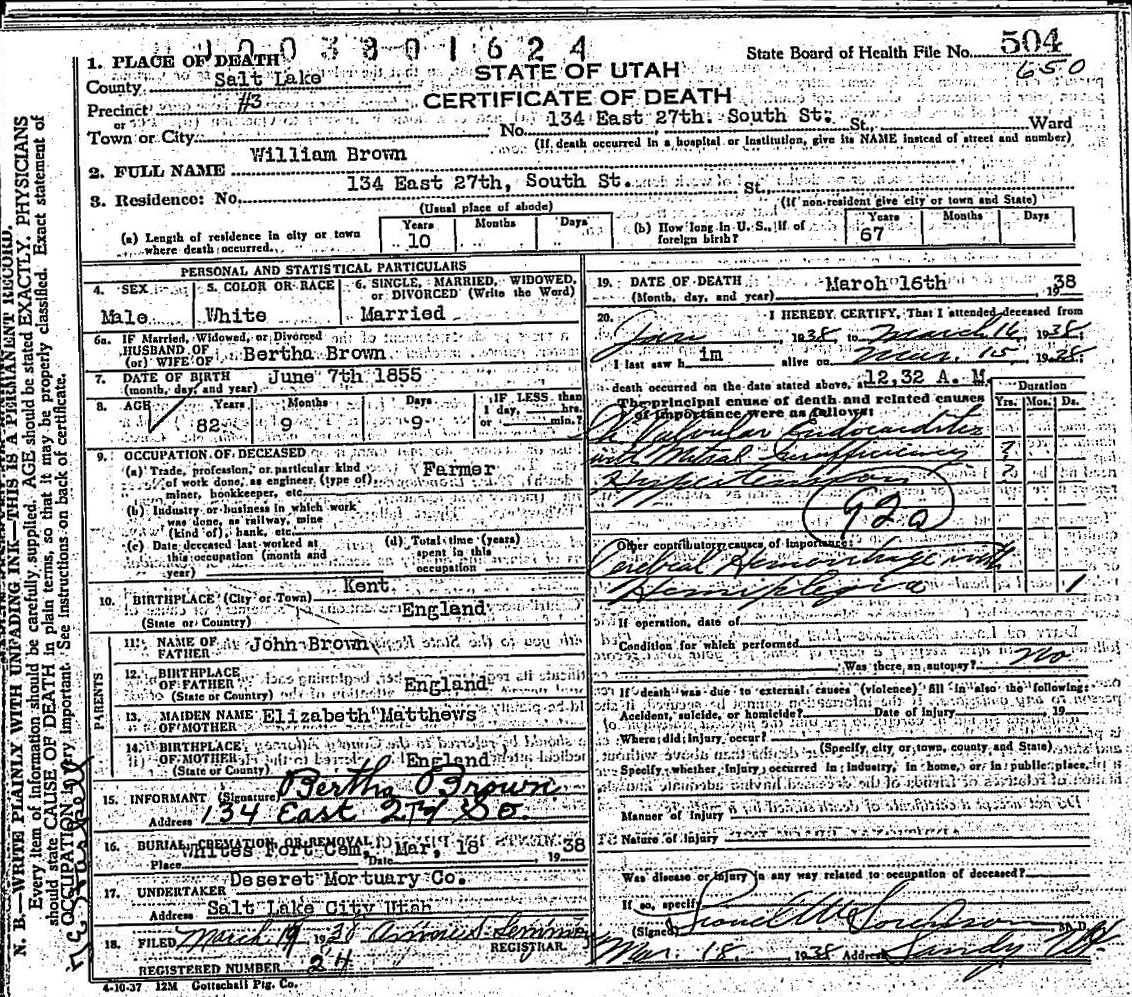 J 0 0 3 8 0 1 6 2 4
State Board of Health File No. 504
650
STATE OF UTAH
CERTIFICATE OF DEATH
1. PLACE OF DEATH
County Salt Lake
Precinct #3
or
Town or City No. 134 East 27th. South St. St. Ward
(If death occurred in a hospital or institution, give its NAME instead of street and number)
2. FULL NAME William Brown
3. Residence: No. 134 East 27th, South St. St.
(Usual place of abode) (If non-resident give city or town and State)
(a) Length of residence in city or town where death occurred. Years 10 Months Days
(b) How long in U. S., if of foreign birth? Years 67 Months Days
PERSONAL AND STATISTICAL PARTICULARS
4. SEX Male
5. COLOR OR RACE White
6. SINGLE, MARRIED, WIDOWED, or DIVORCED (Write the Word) Married
6a. IF Married, Widowed, or Divorced
HUSBAND OF
(or) WIFE OF Bertha Brown
7. DATE OF BIRTH
(month, day, and year) June 7th 1855
8. AGE Years 82 Months 9 Days 9 IF LESS than 1 day, hrs. or min.?
9. OCCUPATION OF DECEASED
(a) Trade, profession, or particular kind of work done, as engineer, (type of), miner, bookkeeper, etc. Farmer
(b) Industry or business in which work was done, as railway, mine (kind of), bank, etc.
(c) Date deceased last worked at this occupation (month and year)
(d) Total time (years) spent in this occupation
10. BIRTHPLACE (City or Town) Kent
(State or Country) England
PARENTS
11. NAME OF FATHER John Brown
12. BIRTHPLACE OF FATHER
(State or Country) England
13. MAIDEN NAME OF MOTHER Elizabeth Matthews
14. BIRTHPLACE OF MOTHER
(State or County) England
15. INFORMANT (Signature) Bertha Brown
Address 134 East 27 So.
16. BURIAL, CREMATION OR REMOVAL
Place Whites Fort Cem. Date Mar, 18 1938
17. UNDERTAKER Deseret Mortuary Co.
Address Salt Lake City Utah
18. FILED March 19 1938
REGISTRAR.
REGISTERED NUMBER 24
4-10-37 12M Gottschall Ptg. Co.
19. DATE OF DEATH March 16th 1938
(Month, day, and year)
20. I HEREBY CERTIFY, That I attended deceased from
Jan 1938, to March 16, 1938,
I last saw him alive on Mar. 15 1938.
death occurred on the date stated above, at 12,32 A. M.
Duration
Yrs. Mos. Ds.
The principal cause of death and related causes of importance were as follows:
Ch Valvular Endocarditis
with Mitral Insufficiency ?
Hypertension ?
92a
Other contributory causes of importance:
Cerebral Hemorrhage with
Hemiplegia 1
If operation, date of
Condition for which performed
Was there an autopsy? No
If death was due to external causes (violence) fill in also the following:
Accident, suicide, or homicide? Date of injury 19
Where did injury occur?
(Specify city or town, county and State)
Specify whether injury occurred in industry, in home, or in public place.
Manner of injury
Nature of injury
Was disease or injury in any way related to occupation of deceased?
If so, specify
(Signed) M. D.
Mar. 18. 1938 Address Sandy Ut.
N. B.—WRITE PLAINLY WITH UNFADING INK—THIS IS A PERMANENT RECORD.
Every item of information should be carefully supplied. AGE should be stated EXACTLY. PHYSICIANS
should state CAUSE OF DEATH in plain terms, so that it may be properly classified. Exact statement of
OCCUPATION is very important. See instructions on back of certificate.